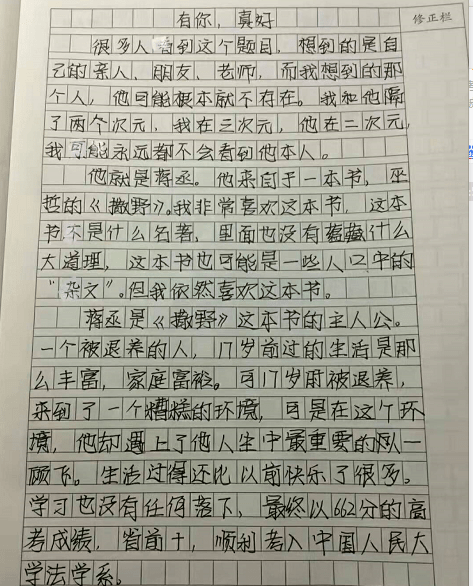 有你，真好
修正栏
很多人看到这个题目，想到的是自
己的亲人、朋友、老师，而我想到的那
个人，他可能根本就不存在。我和他隔
了两个次元，我在三次元，他在二次元，
我可能永远都不会看到他本人。
他就是蒋丞。他来自于一本书，巫
哲的《撒野》。我非常喜欢这本书，这本
书不是什么名著，里面也没有蕴藏什么
大道理，这本书也可能是一些人口中的
“杂文”。但我依然喜欢这本书。
蒋丞是《撒野》这本书的主人公。
一个被退养的人，17岁前过的生活是那
么丰富，家庭富裕。可17岁时被退养，
来到了一个糟糕的环境，可是在这个环
境，他却遇上了他人生中最重要的人一
顾飞。生活过得还比以前快乐了很多。
学习也没有任何落下，最终以662分的高
考成绩，省前十，顺利考入中国人民大
学法学系。